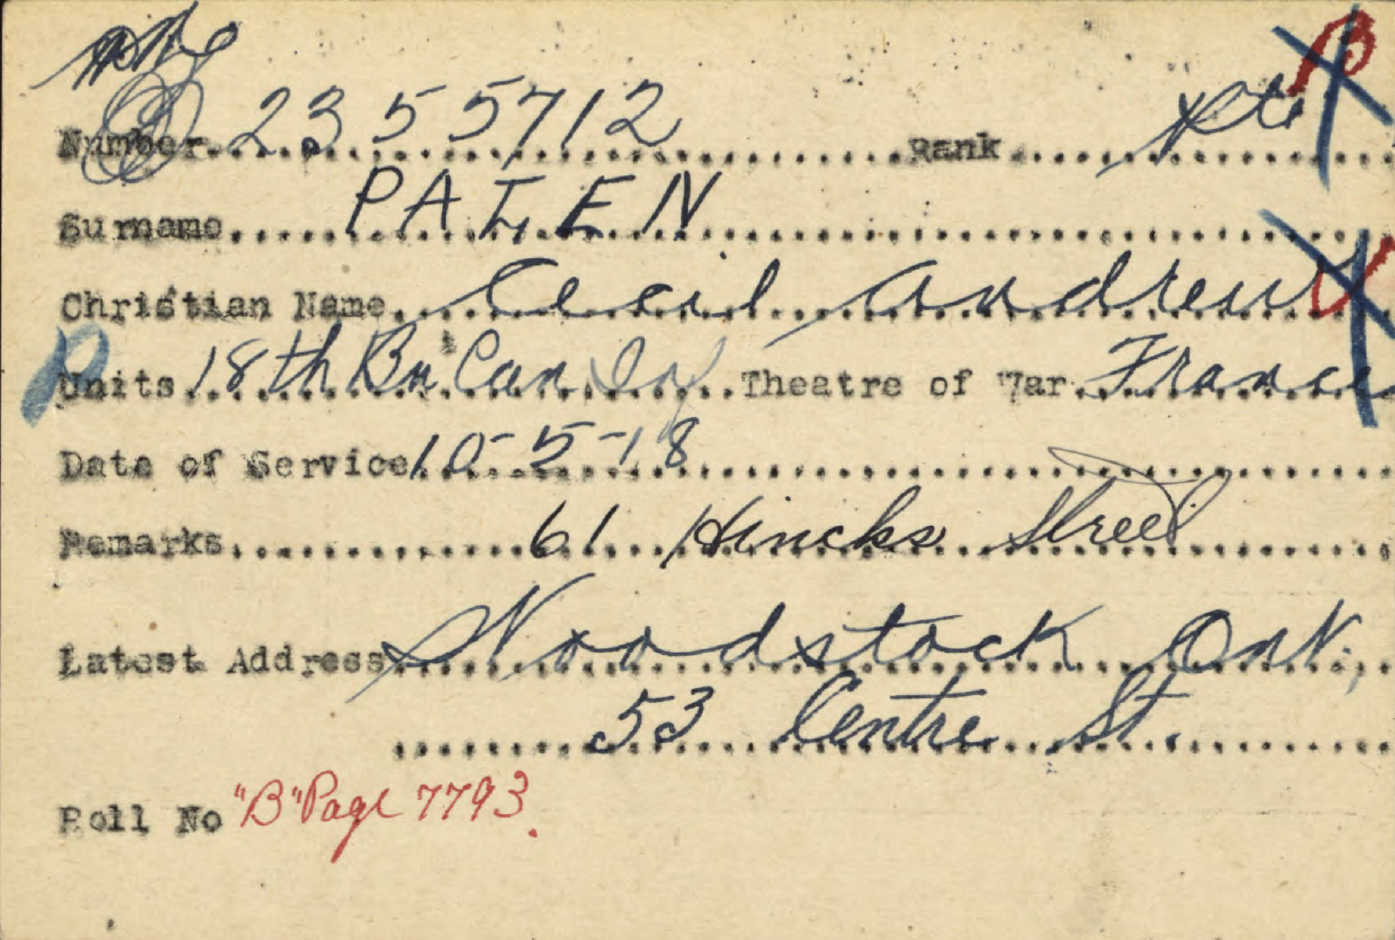 B
Number 2355712 Rank Pte
Surname PALEN
Christian Name Cecil Andrew V
Units 18th Bn Can Inf Theatre of War France
Date of Service 10-5-18
Remarks 61 Hincks Street
Latest Address Woodstock Ont.,
53 Centre St.
Roll No "B" Page 7793.